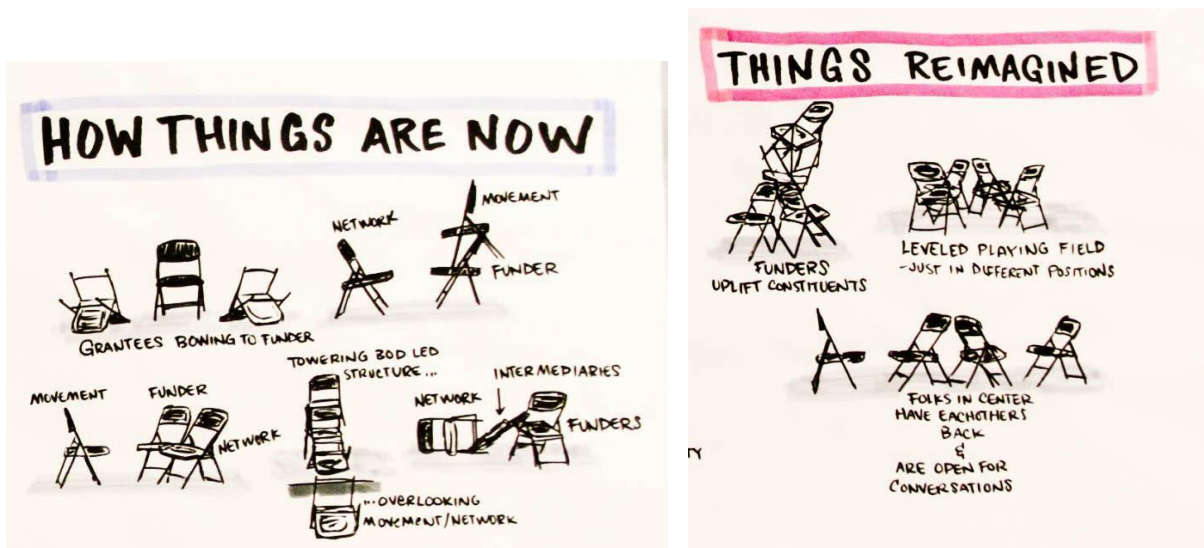 HOW THINGS ARE NOW
NETWORK
MOVEMENT
FUNDER
GRANTEES BOWING TO FUNDER
MOVEMENT
FUNDER
NETWORK
TOWERING BOD LED
STRUCTURE...
...OVERLOOKING
MOVEMENT/NETWORK
INTERMEDIARIES
NETWORK
FUNDERS
THINGS REIMAGINED
FUNDERS
UPLIFT CONSTITUENTS
LEVELED PLAYING FIELD
-JUST IN DIFFERENT POSITIONS
FOLKS IN CENTER
HAVE EACHOTHERS
BACK
&
ARE OPEN FOR
CONVERSATIONS